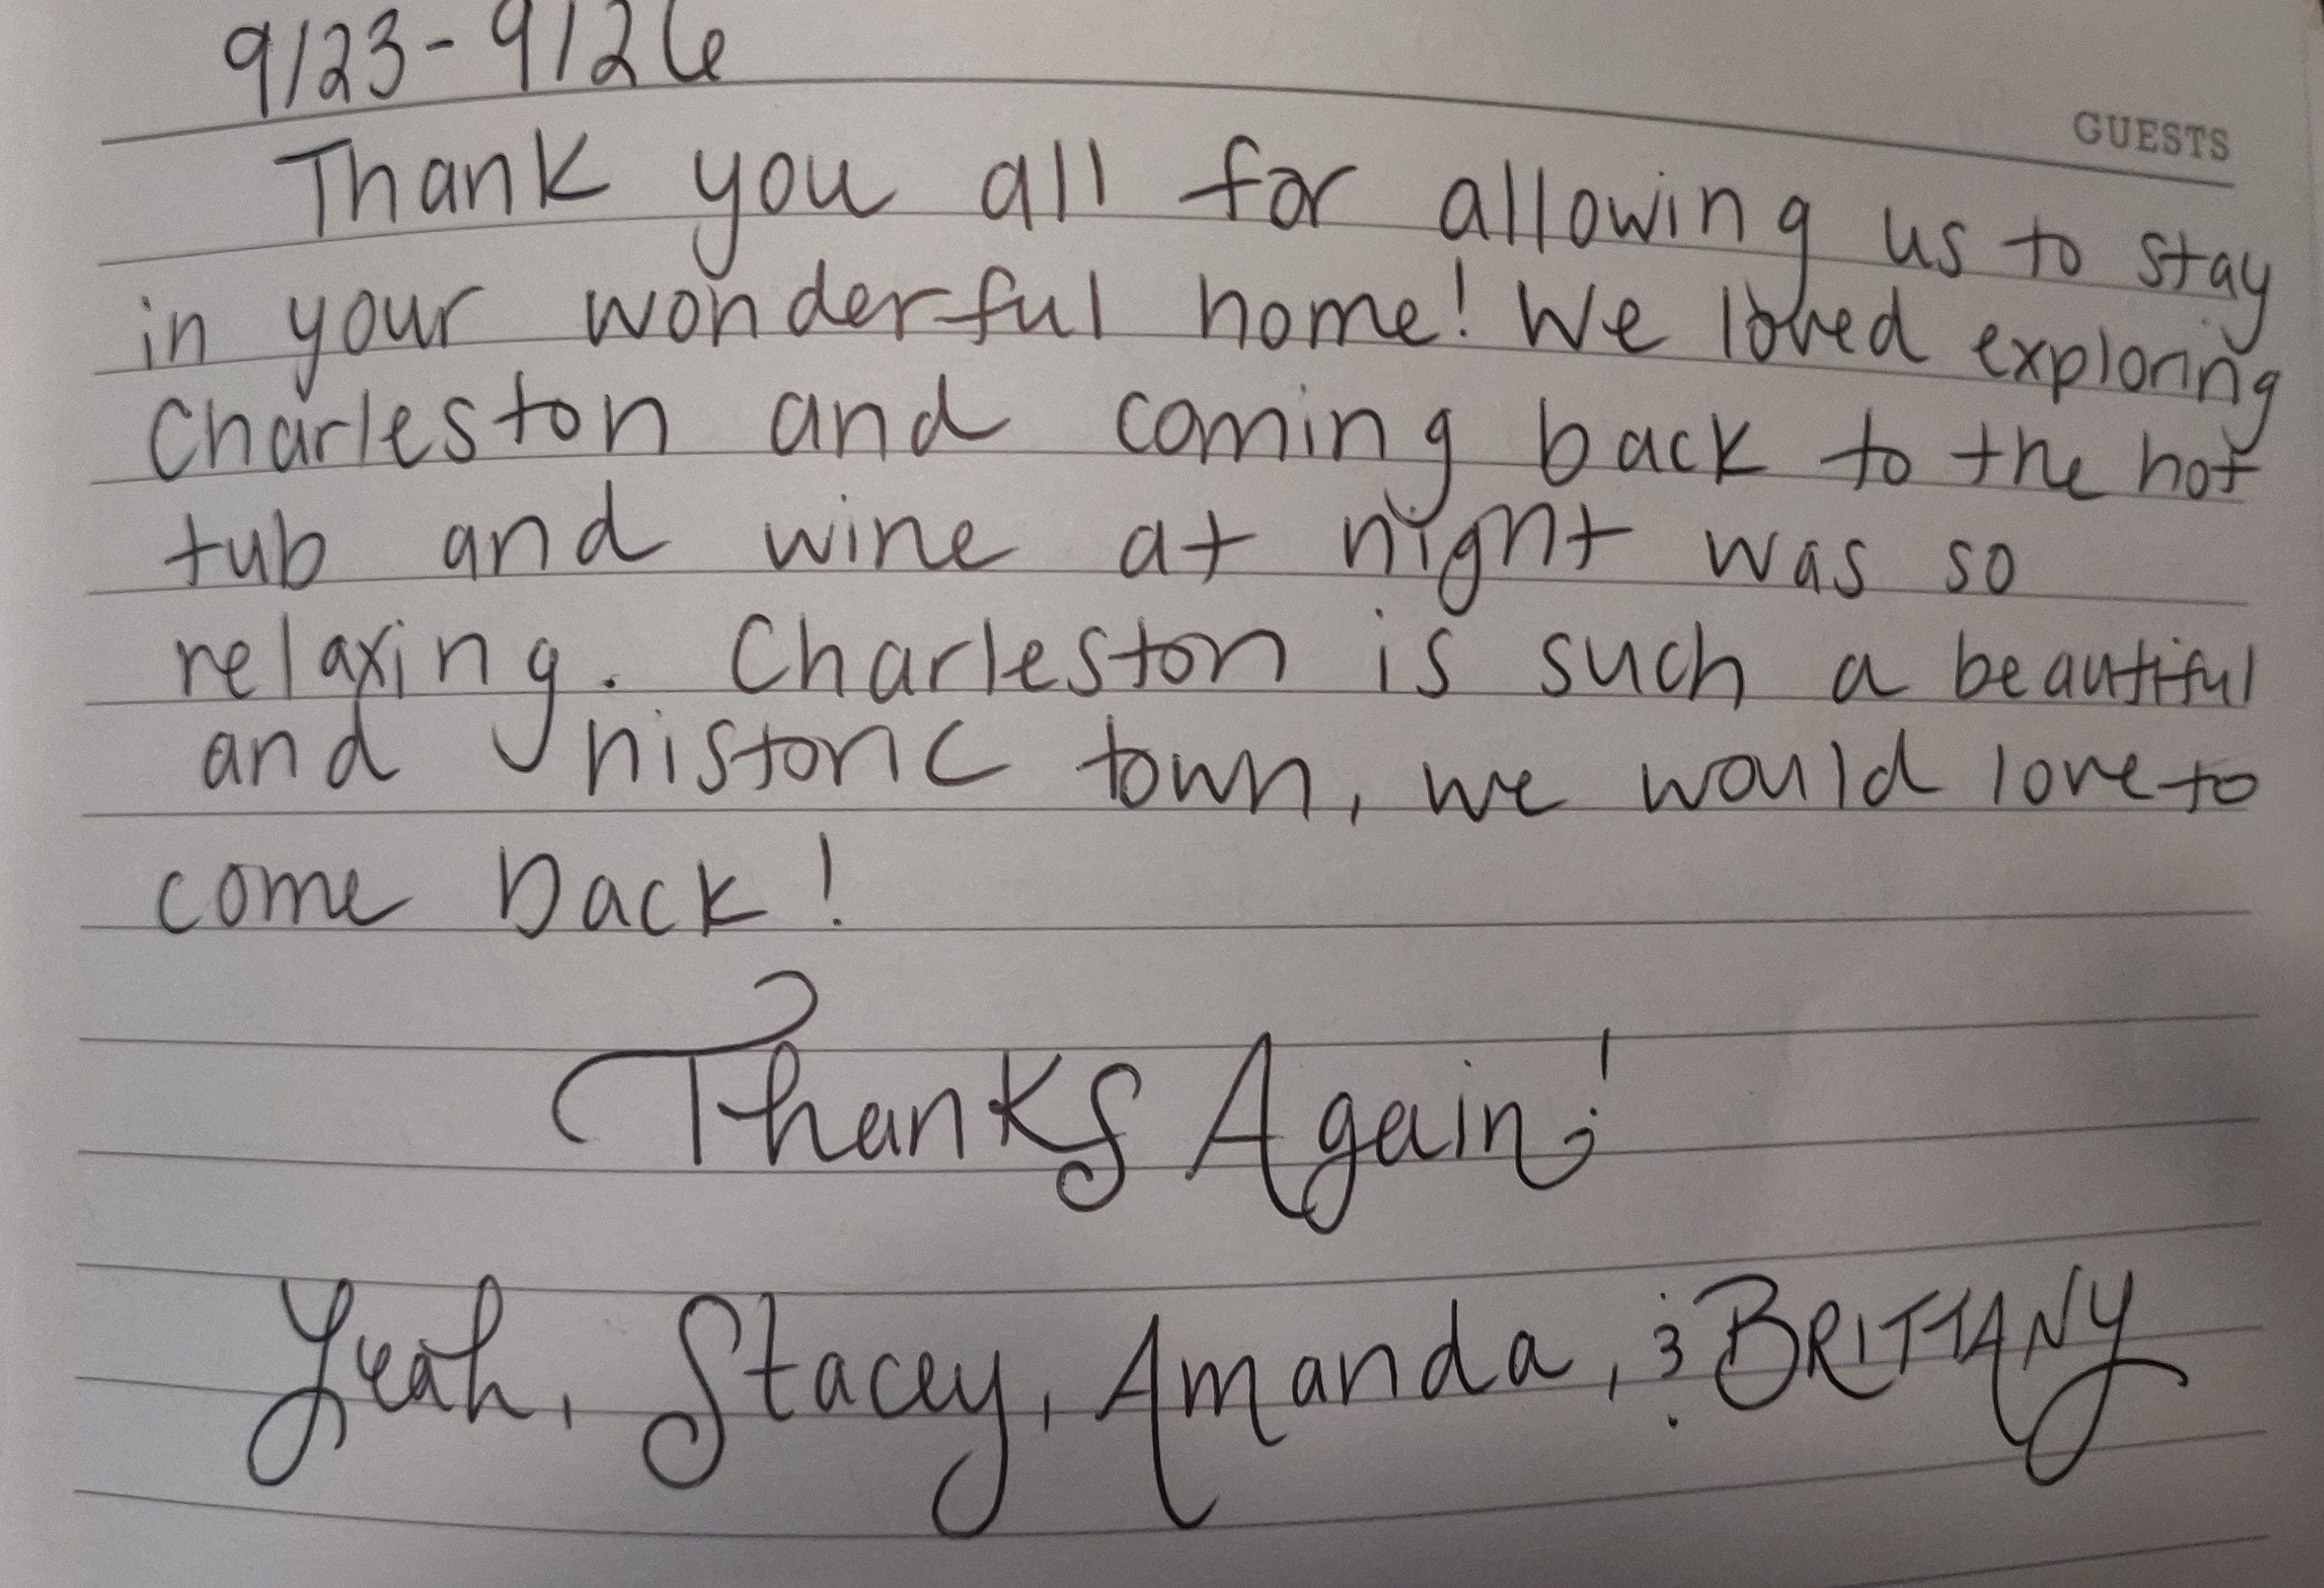 9/23 - 9/26
GUESTS
Thank you all for allowing us to stay
in your wonderful home! We loved exploring
Charleston and coming back to the hot
tub and wine at night was so
relaxing. Charleston is such a beautiful
and historic town, we would love to
come back!
Thanks Again!
Leah, Stacey, Amanda, & BRITTANY